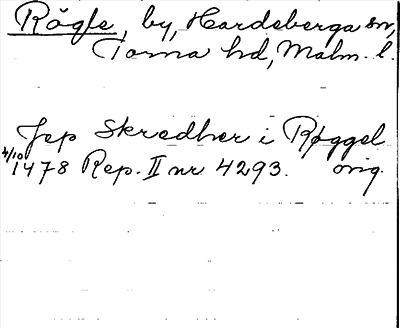 Rögle, by, Hardeberga sn,
Torna hd, Malm. l.
Jep Skredher i Røggel
4/10 1478 Rep. II nr 4293. orig.